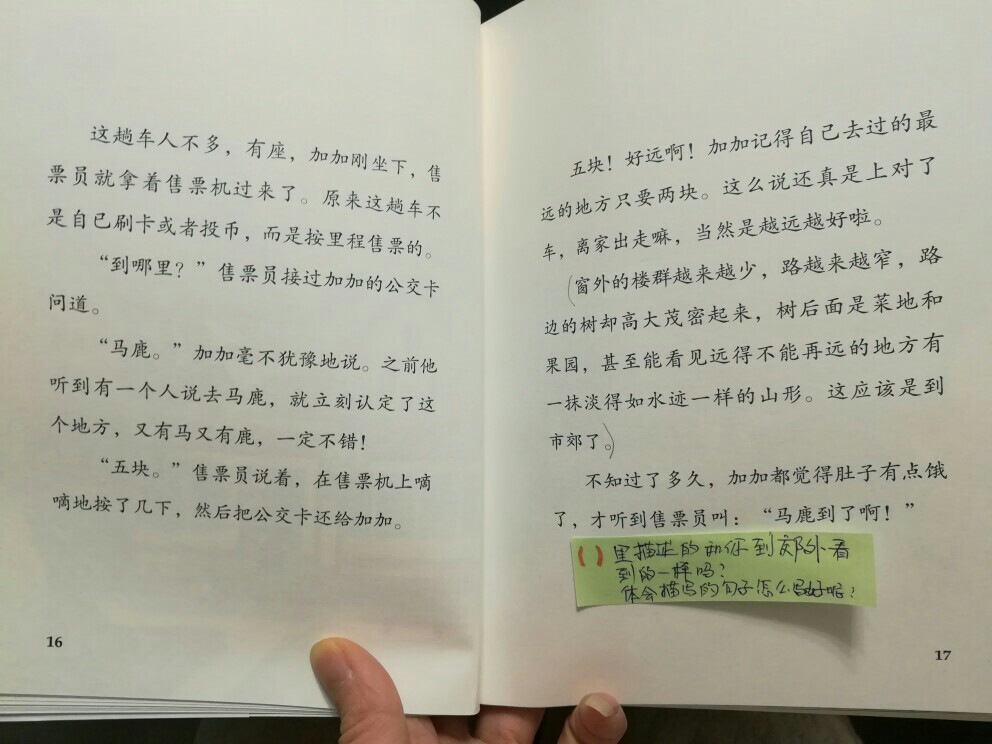 这趟车人不多，有座，加加刚坐下，售
票员就拿着售票机过来了。原来这趟车不
是自己刷卡或者投币，而是按里程售票的。
“到哪里？”售票员接过加加的公交卡
问道。
“马鹿。”加加毫不犹豫地说。之前他
听到有一个人说去马鹿，就立刻认定了这
个地方，又有马又有鹿，一定不错！
“五块。”售票员说着，在售票机上嘀
嘀地按了几下，然后把公交卡还给加加。
16
五块！好远啊！加加记得自己去过的最
远的地方只要两块。这么说还真是上对了
车，离家出走嘛，当然是越远越好啦。
(窗外的楼群越来越少，路越来越窄，路
边的树却高大茂密起来，树后面是菜地和
果园，甚至能看见远得不能再远的地方有
一抹淡得如水迹一样的山形。这应该是到
市郊了。)
不知过了多久，加加都觉得肚子有点饿
了，才听到售票员叫：“马鹿到了啊！”
( )里描述的和你到郊外看
到的一样吗？
体会描写的句子怎么写好呢？
17